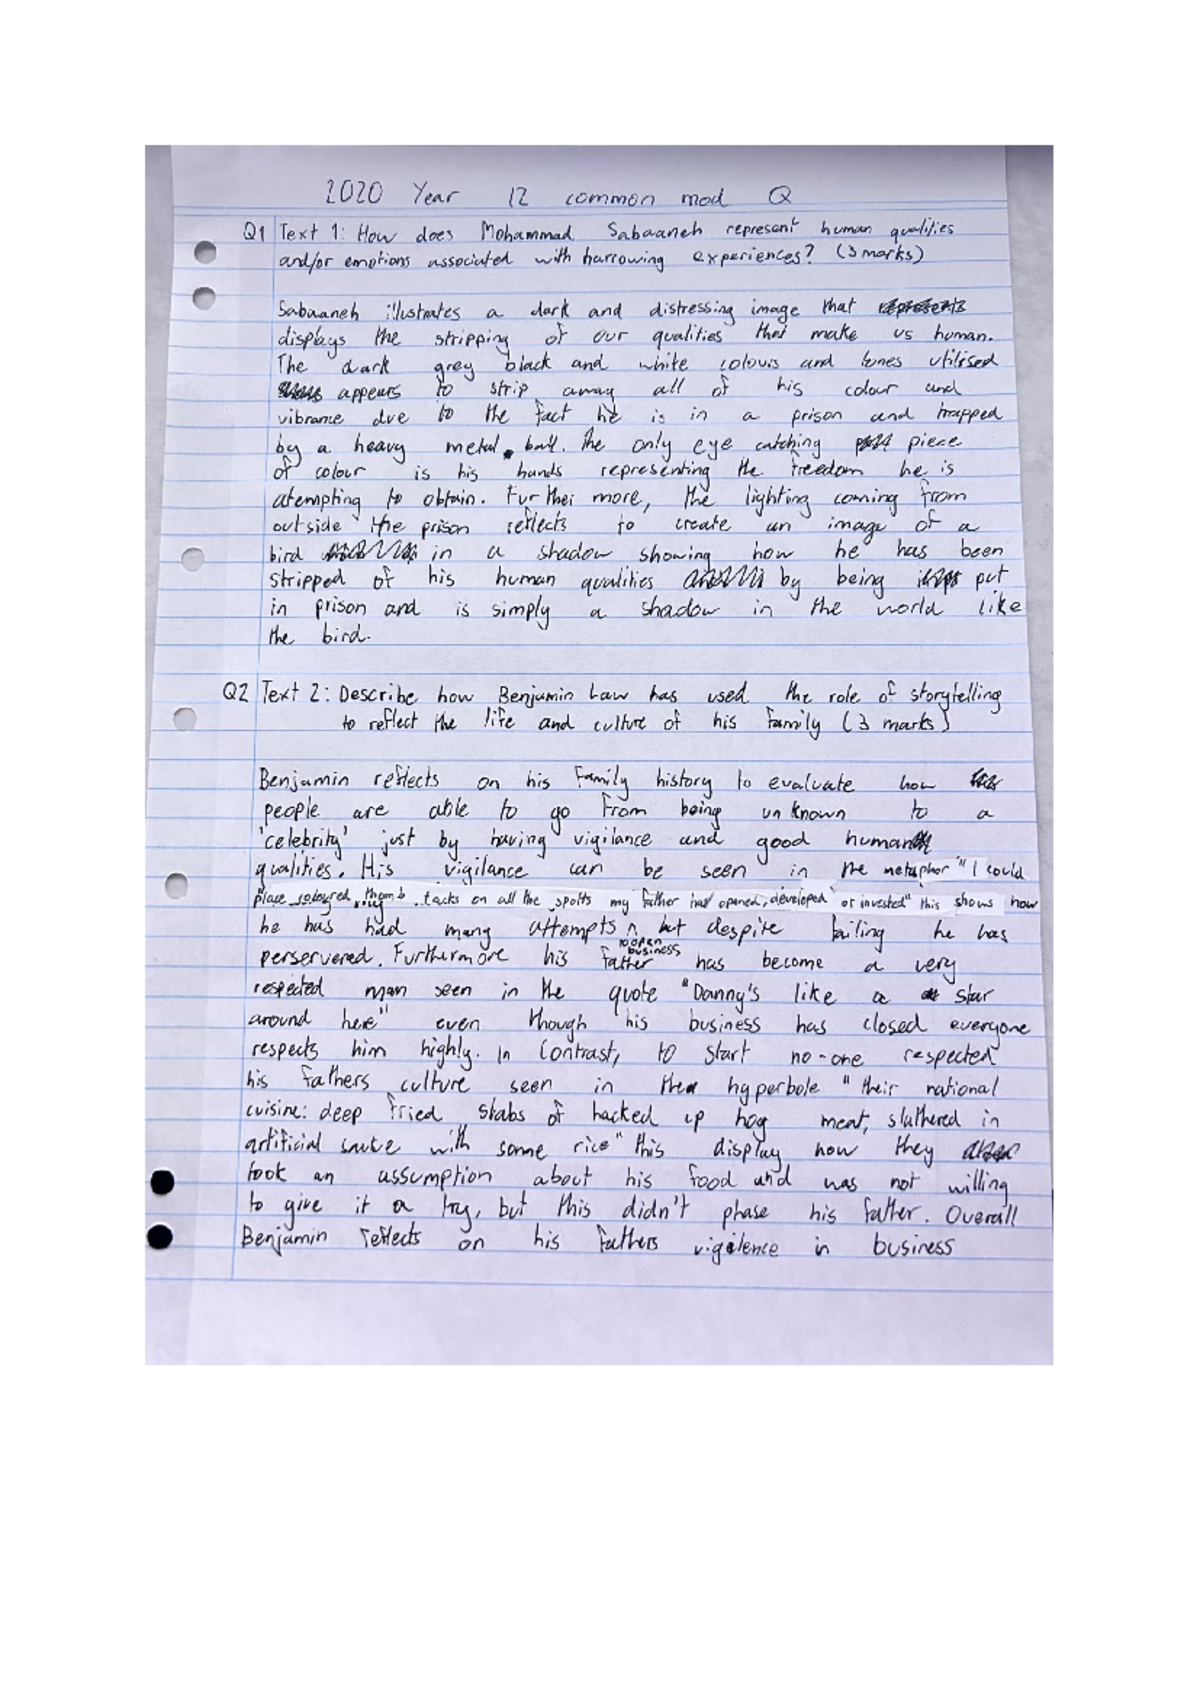 2020 Year 12 common mod Q
Q1 Text 1: How does Mohammad Sabaaneh represent human qualities
and/or emotions associated with harrowing experiences? (3 marks)
Sabaaneh illustrates a dark and distressing image that represents
displays the stripping of our qualities that make us human.
The dark grey black and white colours and tones utilised
appears to strip away all of his colour and
vibrance due to the fact he is in a prison and trapped
by a heavy metal ball. The only eye catching piece
of colour is his hands representing the freedom he is
atempting to obtain. Further more, the lighting coming from
outside the prison reflects to create an image of a
bird in a shadow showing how he has been
stripped of his human qualities by being put
in prison and is simply a shadow in the world like
the bird.
Q2 Text 2: Describe how Benjamin Law has used the role of storytelling
to reflect the life and culture of his family (3 marks)
Benjamin reflects on his family history to evaluate how
people are able to go from being unknown to a
'celebrity' just by having vigilance and good human
qualities. His vigilance can be seen in the metaphor "I could
place coloured thumb tacks on all the spolts my father had opened, developed or invested" this shows how
he has had many attempts ^ but despite failing he has
to open
business
perservered. Furthermore his father has become a very
respected man seen in the quote "Danny's like a star
around here" even though his business has closed everyone
respects him highly. In Contrast, to start no-one respected
his fathers culture seen in the hyperbole "their national
cuisine: deep fried slabs of hacked up hog meat, slathered in
artificial sauce with some rice" this display how they
took an assumption about his food and was not willing
to give it a try, but this didn't phase his father. Overall
Benjamin reflects on his fathers vigilence in business